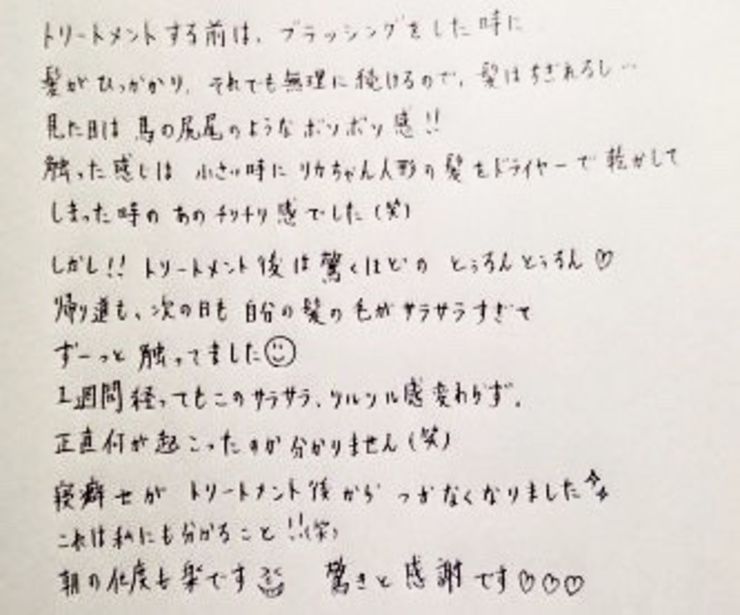 トリートメントする前は、ブラッシングをした時に
髪がひっかかり、それでも無理に続けるので、髪はちぎれるし…
見た目は馬の尻尾のようなボソボソ感!!
触った感じは 小さい時に リカちゃん人形の髪をドライヤーで乾かして
しまった時の あのチリチリ感でした(笑)
しかし!! トリートメント後は驚くほどの とぅるんとぅるん♡
帰り道も、次の日も 自分の髪の毛がサラサラすぎて
ずーっと 触ってました☺
1週間経ってもこのサラサラ、ツルツル感変わらず。
正直何が起こったのか分かりません(笑)
寝癖せが トリートメント後から つかなくなりました
これは私にも分かること!!(笑)
朝の仕度も楽です 驚きと感謝です♡♡♡